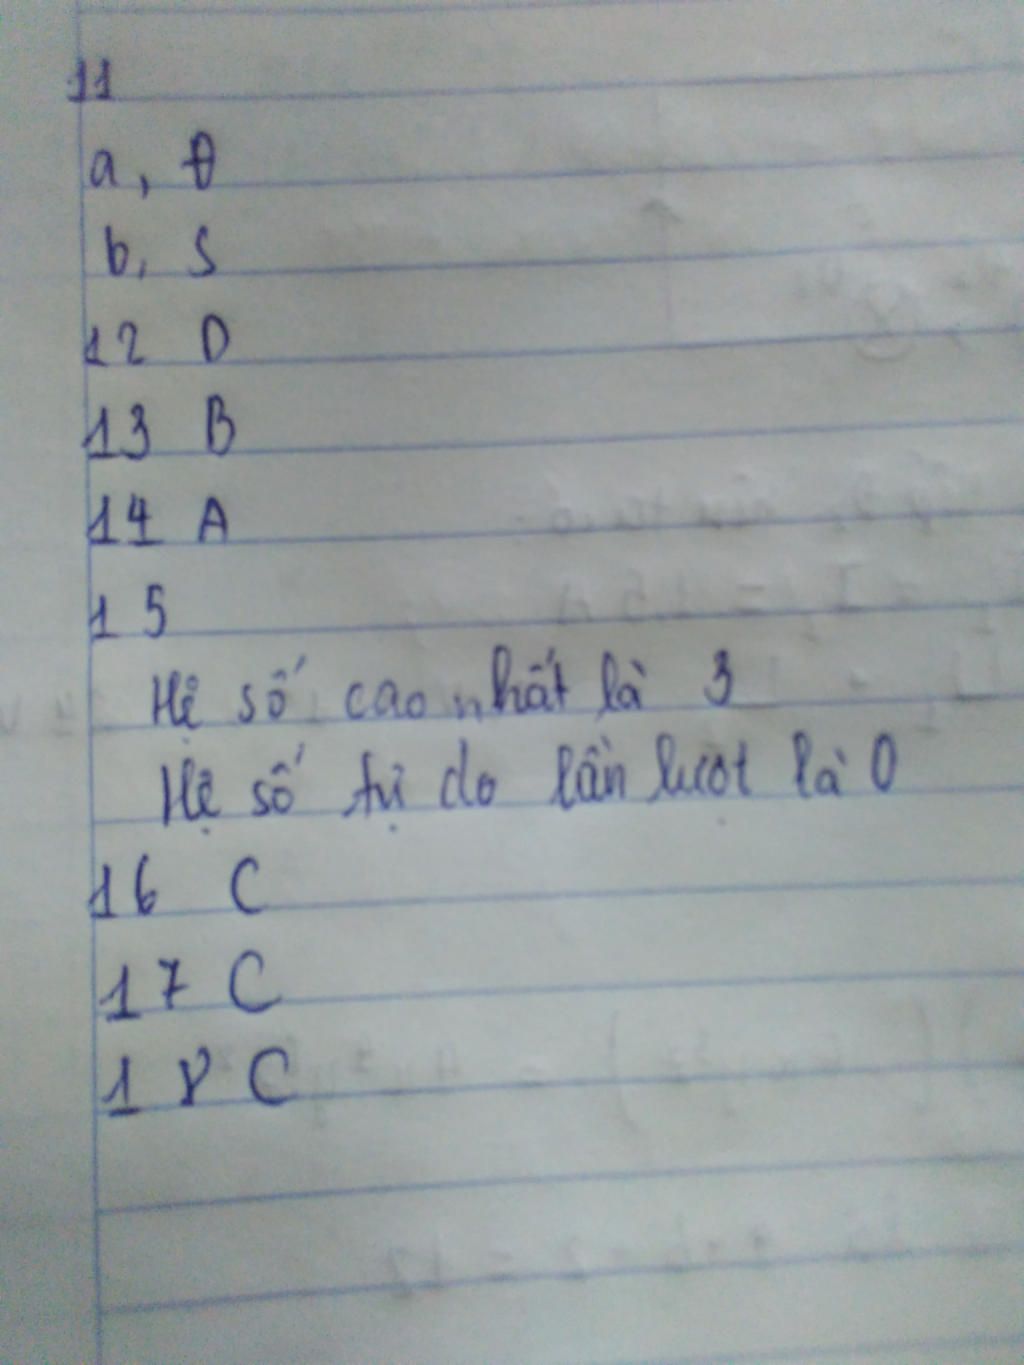 11
a, Đ
b, S
12 D
13 B
14 A
15
Hệ số cao nhất là 3
Hệ số tự do lần lượt là 0
16 C
17 C
18 C